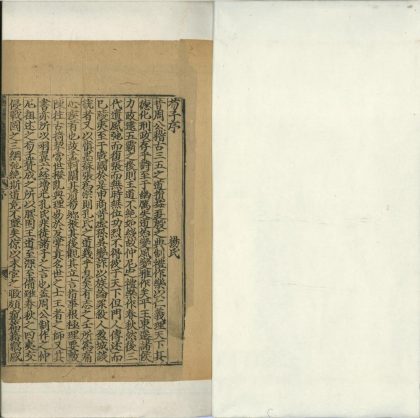 荀子序
楊氏
昔周公稽古三五之道損益夏殷之典制禮作樂以仁義理天下其
德化刑政存乎詩至于幽厲失道始變風變雅作矣平王東遷諸侯
力政逮五霸之後則王道不絕如綫故仲尼定禮樂作春秋然後三
代遺風弛而復張而無時無位功烈不得被于天下但門人傳述而
已陵夷至于戰國於是申商苛虐孫吳變詐以族論罪殺人盈城談
說者又以慎墨蘇張爲宗則孔氏之道幾乎息矣有志之士所爲痛
心疾首也故孟軻闡其前荀卿振其後觀其立言指事根極理要敷
陳往古掎挈當世撥亂興理易於反掌真名世之士王者之師又其
書亦所以羽翼六經增光孔氏非徒諸子之言也蓋周公制作之仲
尼祖述之荀孟贊成之所以膠固王道至深至備雖春秋之四夷交
侵戰國之三綱弛絕斯道竟不墜矣倞以末宦之暇頗窺篇籍竊感